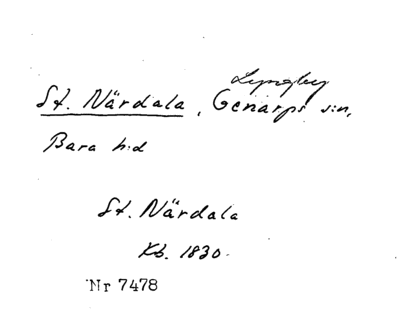 Lyngby
St. Närdala, Genarps s:n,
Bara h:d
St. Närdala
Kb. 1830.
Nr 7478